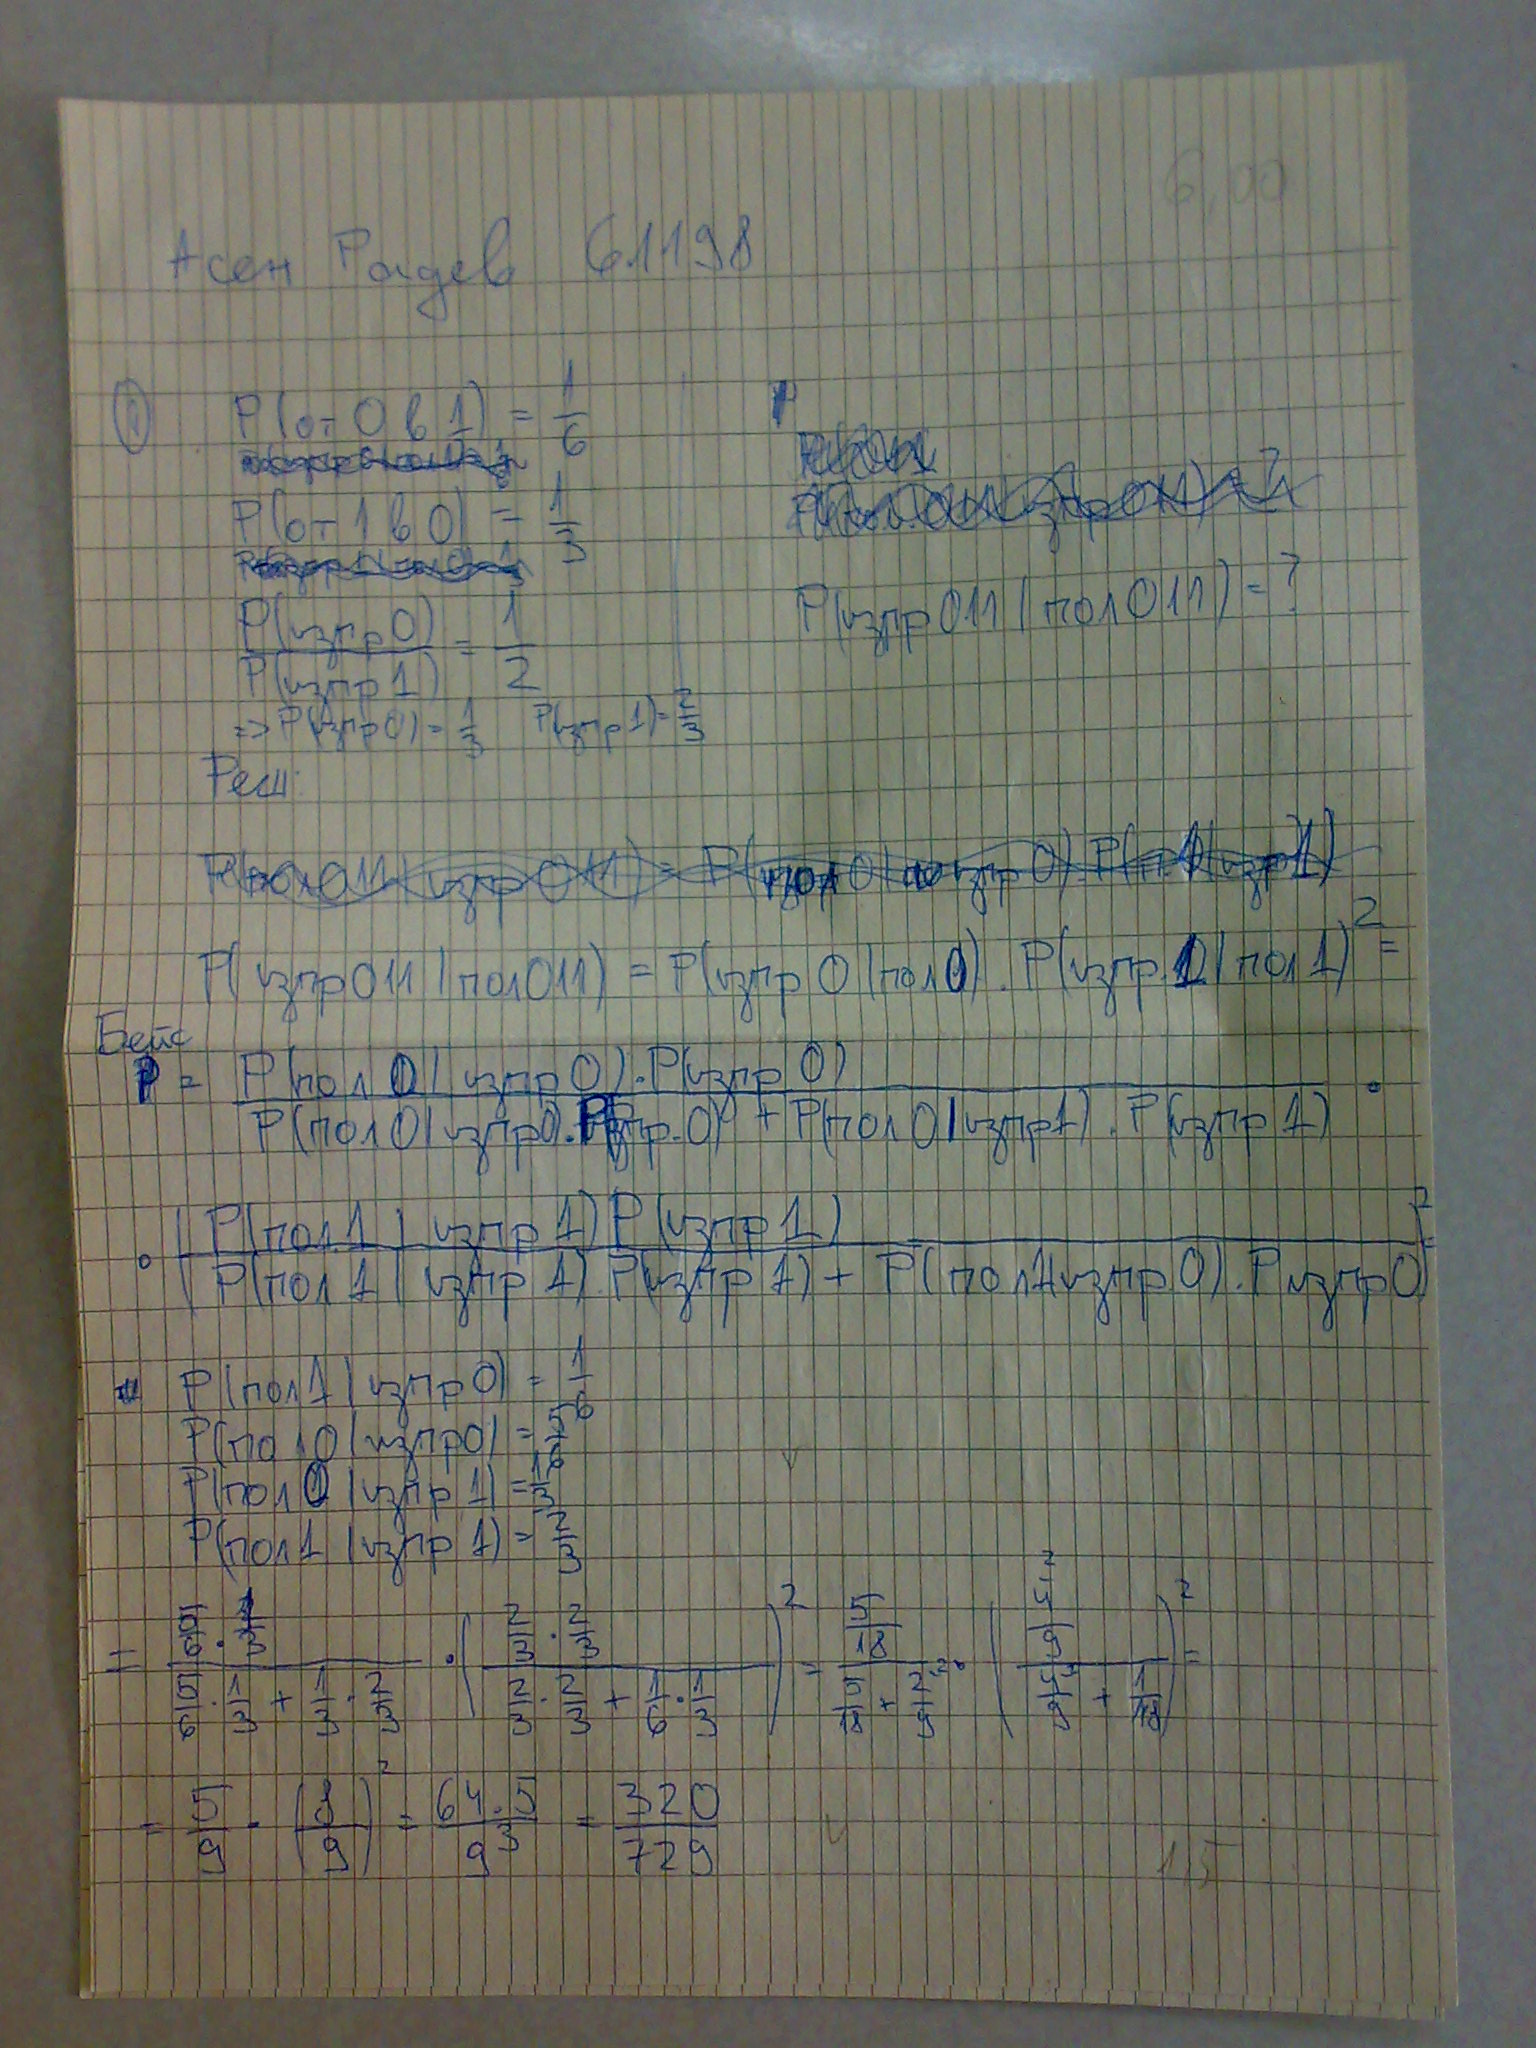 6,00
Асен Радев 61198
① P(от 0 в 1) = 1/6
P(от 1 в 0) = 1/3
P(изпр 011 | пол 011) = ?
P(изпр 0) / P(изпр 1) = 1/2
=> P(изпр 0) = 1/3 P(изпр 1) = 2/3
Реш:
P(изпр 011 | пол 011) = P(изпр 0 | пол 0) . P(изпр 1 | пол 1)² =
Бейс
= P(пол 0 | изпр 0) . P(изпр 0) / P(пол 0 | изпр 0) . P(изпр. 0) + P(пол 0 | изпр 1) . P(изпр 1) .
. (P(пол 1 | изпр 1) P(изпр 1) / P(пол 1 | изпр 1) . P(изпр 1) + P(пол 1 | изпр 0) . P изпр 0)² =
P(пол 1 | изпр 0) = 1/6
P(пол 0 | изпр 0) = 5/6
P(пол 0 | изпр 1) = 1/3
P(пол 1 | изпр 1) = 2/3
= (5/6 . 1/3) / (5/6 . 1/3 + 1/3 . 2/3) . ((2/3 . 2/3) / (2/3 . 2/3 + 1/6 . 1/3))² = (5/18) / (5/18 + 2/9) . ((4/9) / (4/9 + 1/18))² =
= 5/9 . (8/9)² = 64.5 / 9³ = 320/729
1,5